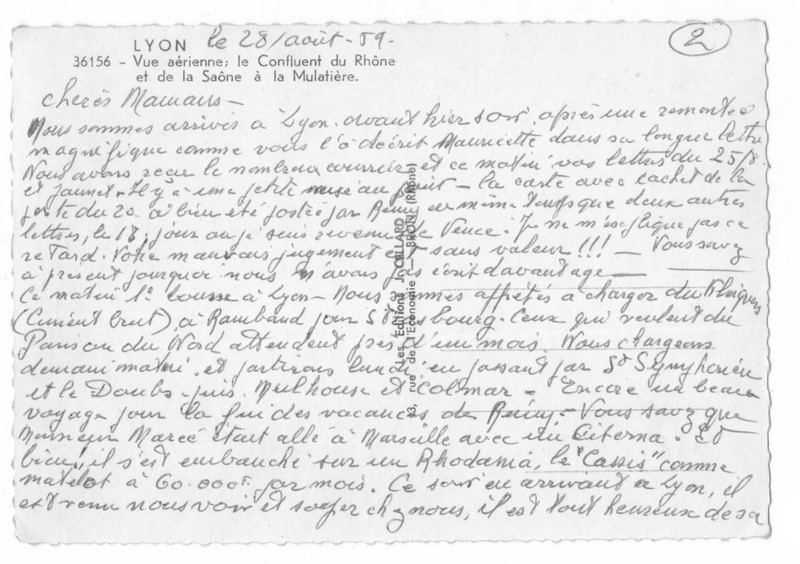 LYON le 28/août-59- 2
36156 - Vue aérienne; le Confluent du Rhône
et de la Saône à la Mulatière.
chères Mamans -
Nous sommes arrivés à Lyon avant hier soir, après une remontée
magnifique comme vous l'a décrit Mauricette dans sa longue lettre
Nous avons reçu le nombreux courrier et ce matin vos lettres du 25/8.
et jaunet - Il y a une petite mise au point - la carte avec cachet de la
poste du 20 a bien été postée par Rémy en même temps que deux autres
lettres, le 18, jour où je suis revenu de Vence. Je ne m'explique pas ce
retard. Votre mauvais jugement est sans valeur !!! - Vous savez
à présent pourquoi nous n'avons pas écrit davantage -
Ce matin 1e bourse à Lyon - Nous sommes affrétés à charger du
(Ciment brut), à Rambaud pour Strasbourg. Ceux qui veulent du
Paris ou du Nord attendent près d'un mois. Nous chargeons
demain matin et partirons lundi en passant par St Symphorien
et le Doubs - puis Mulhouse et Colmar - Encore un beau
voyage pour la fin des vacances de Rémy - Vous savez que
Monsieur Marcé était allé à Marseille avec un Citerna. Et
bien, il s'est embauché sur un Rhodania, le "Cassis" comme
matelot à 60.000F par mois. Ce soir en arrivant à Lyon, il
est venu nous voir et souper chez nous, il est tout heureux de sa
Les Editions J. CELLARD
83, rue de l'Economie - BRON (Rhône)